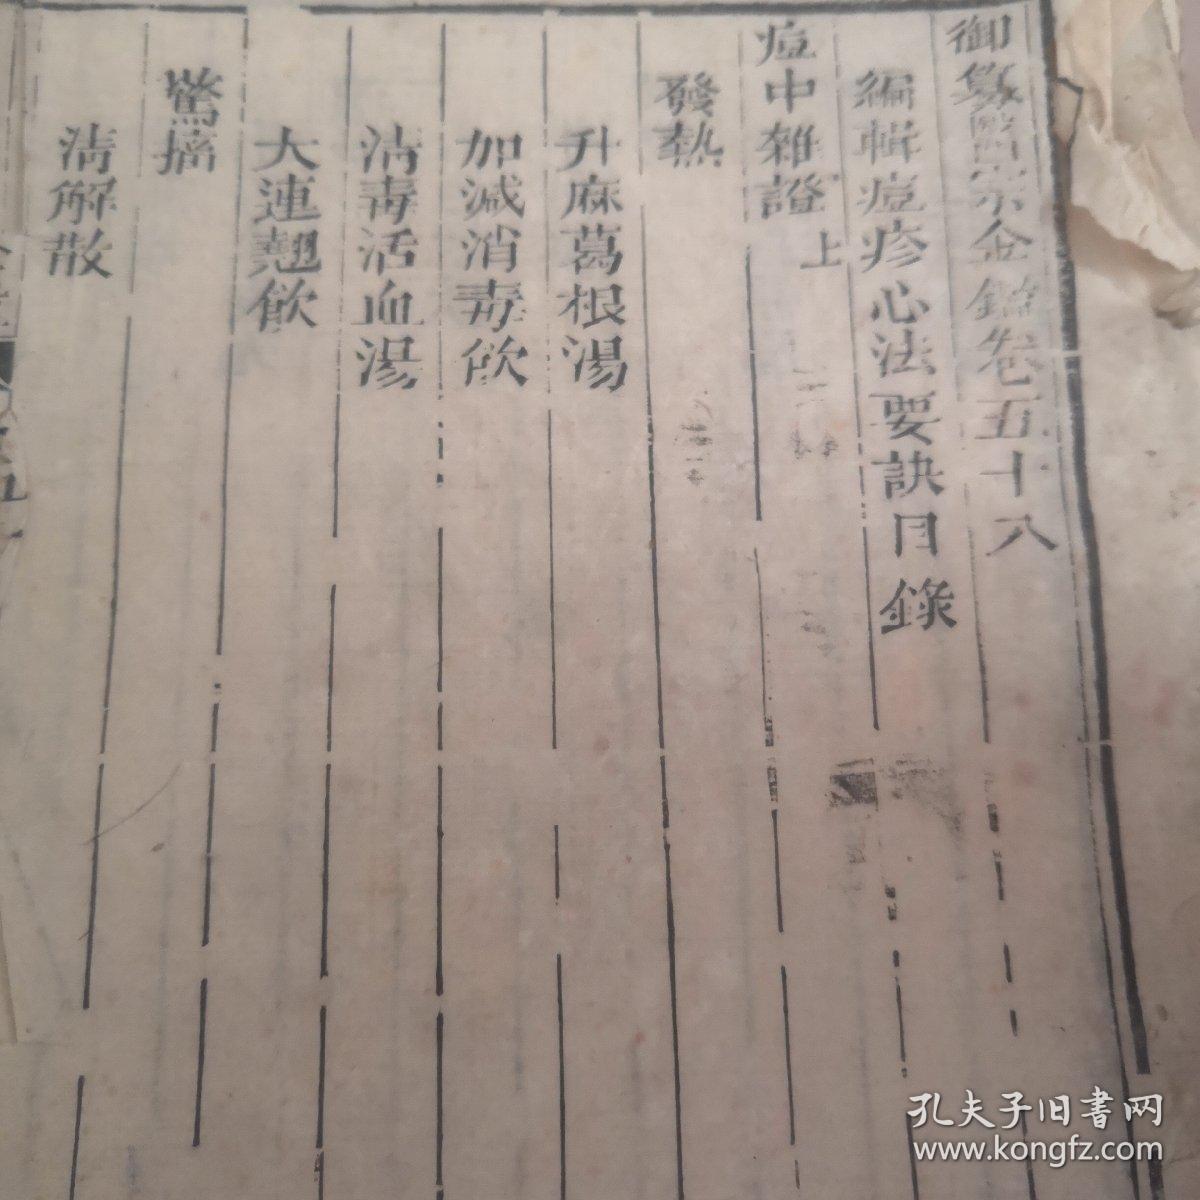 御纂醫宗金鑑卷五十八
編輯痘疹心法要訣目錄
痘中雜證 上
發熱
升麻葛根湯
加減消毒飲
清毒活血湯
大連翹飲
驚搐
清解散
孔夫子旧书网
www.kongfz.com